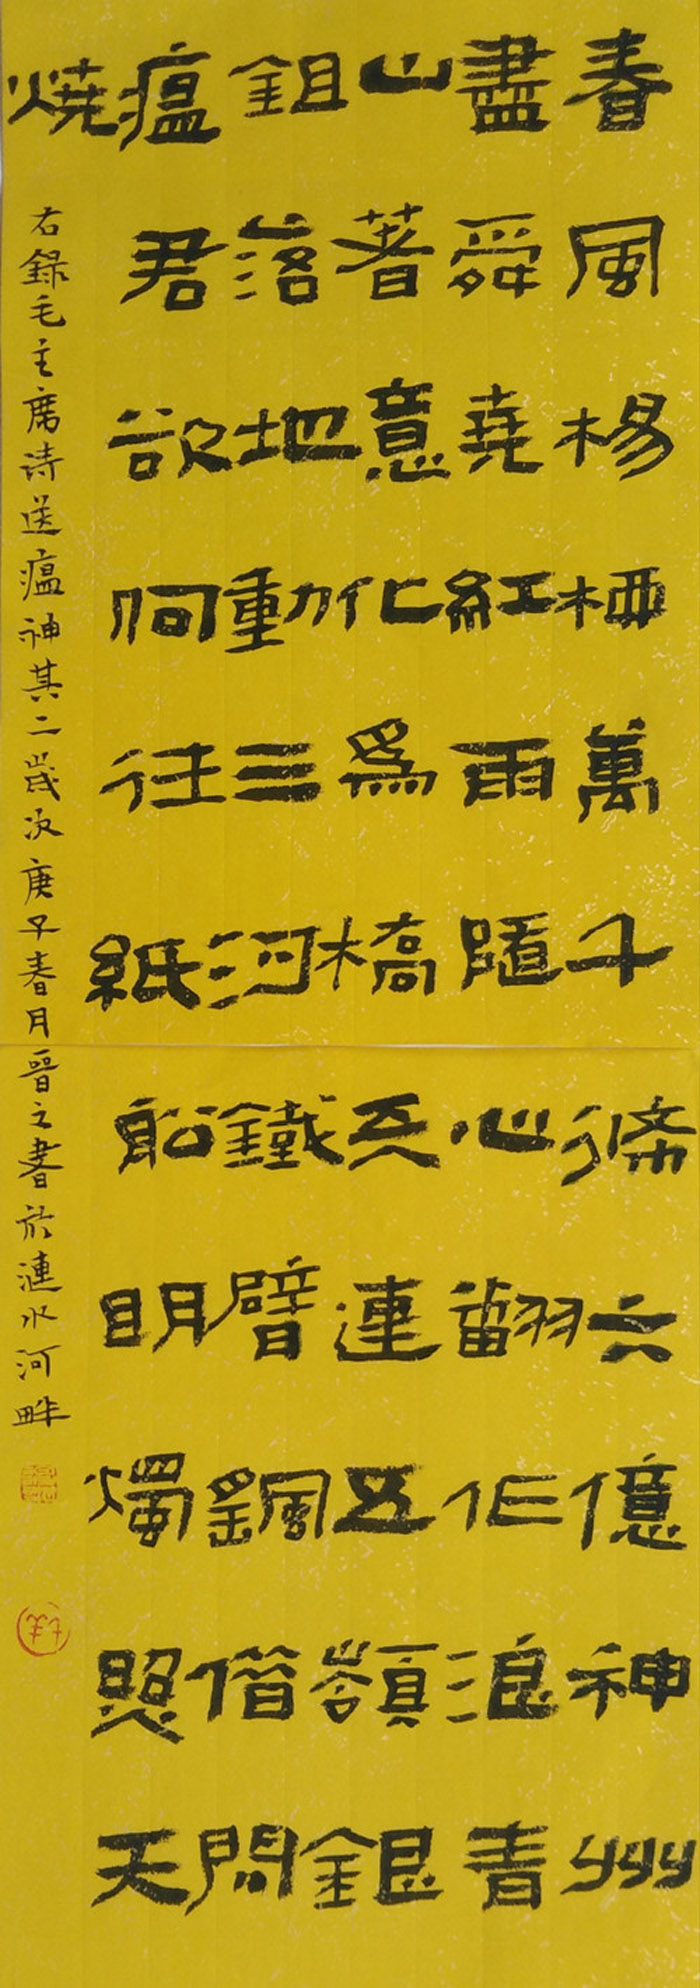 春風楊柳萬千條六億神州
盡舜堯紅雨隨心翻作浪青
山著意化為橋天連五嶺銀
鉏落地動三河鐵臂飖借問
瘟君欲何往紙船明燭照天
燒
右錄毛主席诗送瘟神其二歲次庚子春月晉之書於漣水河畔